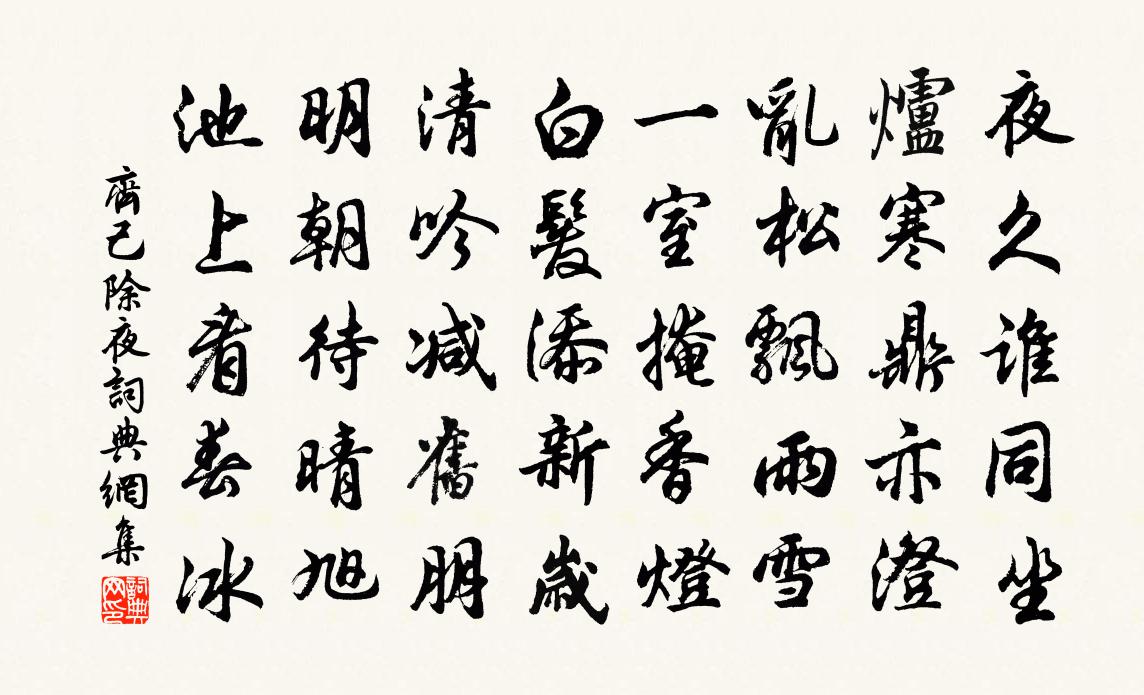 夜久谁同坐
爐寒鼎亦澄
亂松飄雨雪
一室掩香燈
白髮添新歲
清吟減舊朋
明朝待晴旭
池上看春冰
齊己除夜詞典網集
詞典网印